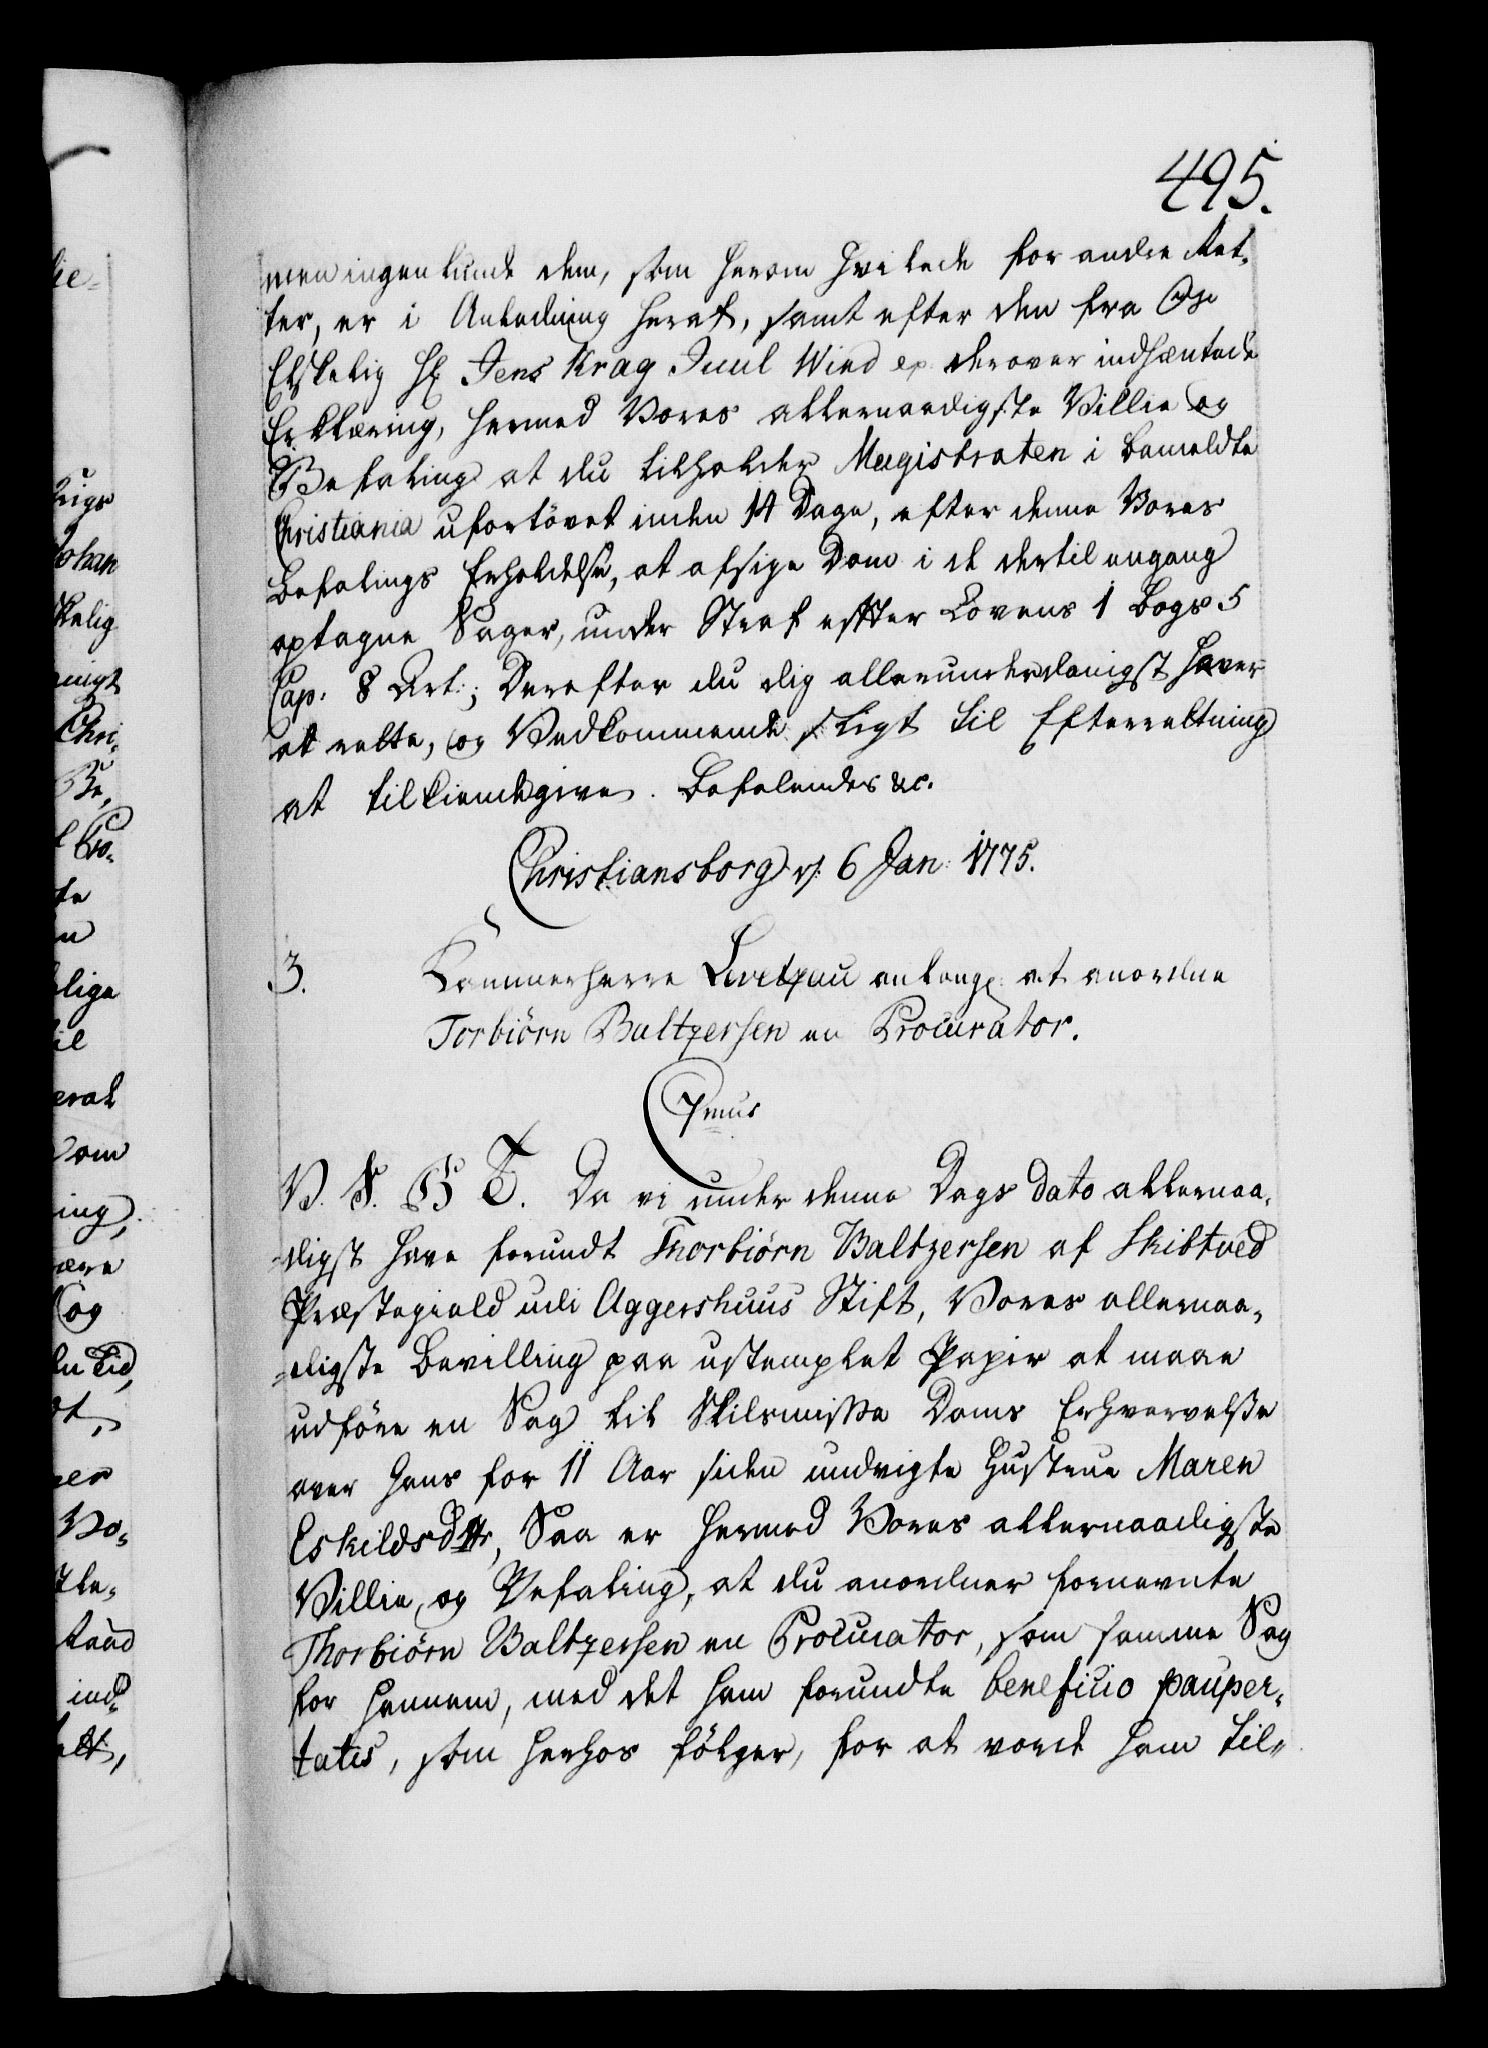 495.
men ingenlunde dem, som herom hvilede for andre Ret-
ter, er i Anledning heraf, samt efter den fra Os
Elskelig Hr Jens Krag Juul Wind ex. derover indhentede
Erklæring, hermed Vores allernaadigste Villie og
Befaling at du tilholder Magistraten i bemeldte
Christiania ufortövet inden 14 Dage, efter denne Vores
Befalings Erholdelse, at afsige Dom i de dertil engang
optagne Sager, under Straf effter Lovens 1 Bogs 5
Cap: 8 Art:; Derefter du dig allerunderdanigst haver
at rette, og Vedkommende sligt til Efterretning
at tilkiendegive. Befalendes &c.
Christiansborg d: 6 Jan: 1775.
3. Kammerherre Levetzau anlangl: at anordne
Torbiörn Baltzersen en Procurator.
C 7mus
V. S. G T. Da vi under denne Dags dato allernaa-
digst have forundt Thorbiörn Baltzersen af Skibtved
Præstegield udi Aggershuus Stift, Vores allernaa-
digste Bevilling paa ustemplet Papir at maae
udföre en Sag til Skilsmisse Doms Erhvervelse
over hans for 11 Aar siden undvigte Hustrue Maren
Eskildsdttr, Saa er hermed Vores allernaadigste
Villie, og Befaling, at du anordner fornevnte
Thorbiörn Baltzersen en Procurator, som samme Sag
for hannem, med det ham forundte beneficio pauper-
tatis, som herhos fölger, for at vorde ham til-